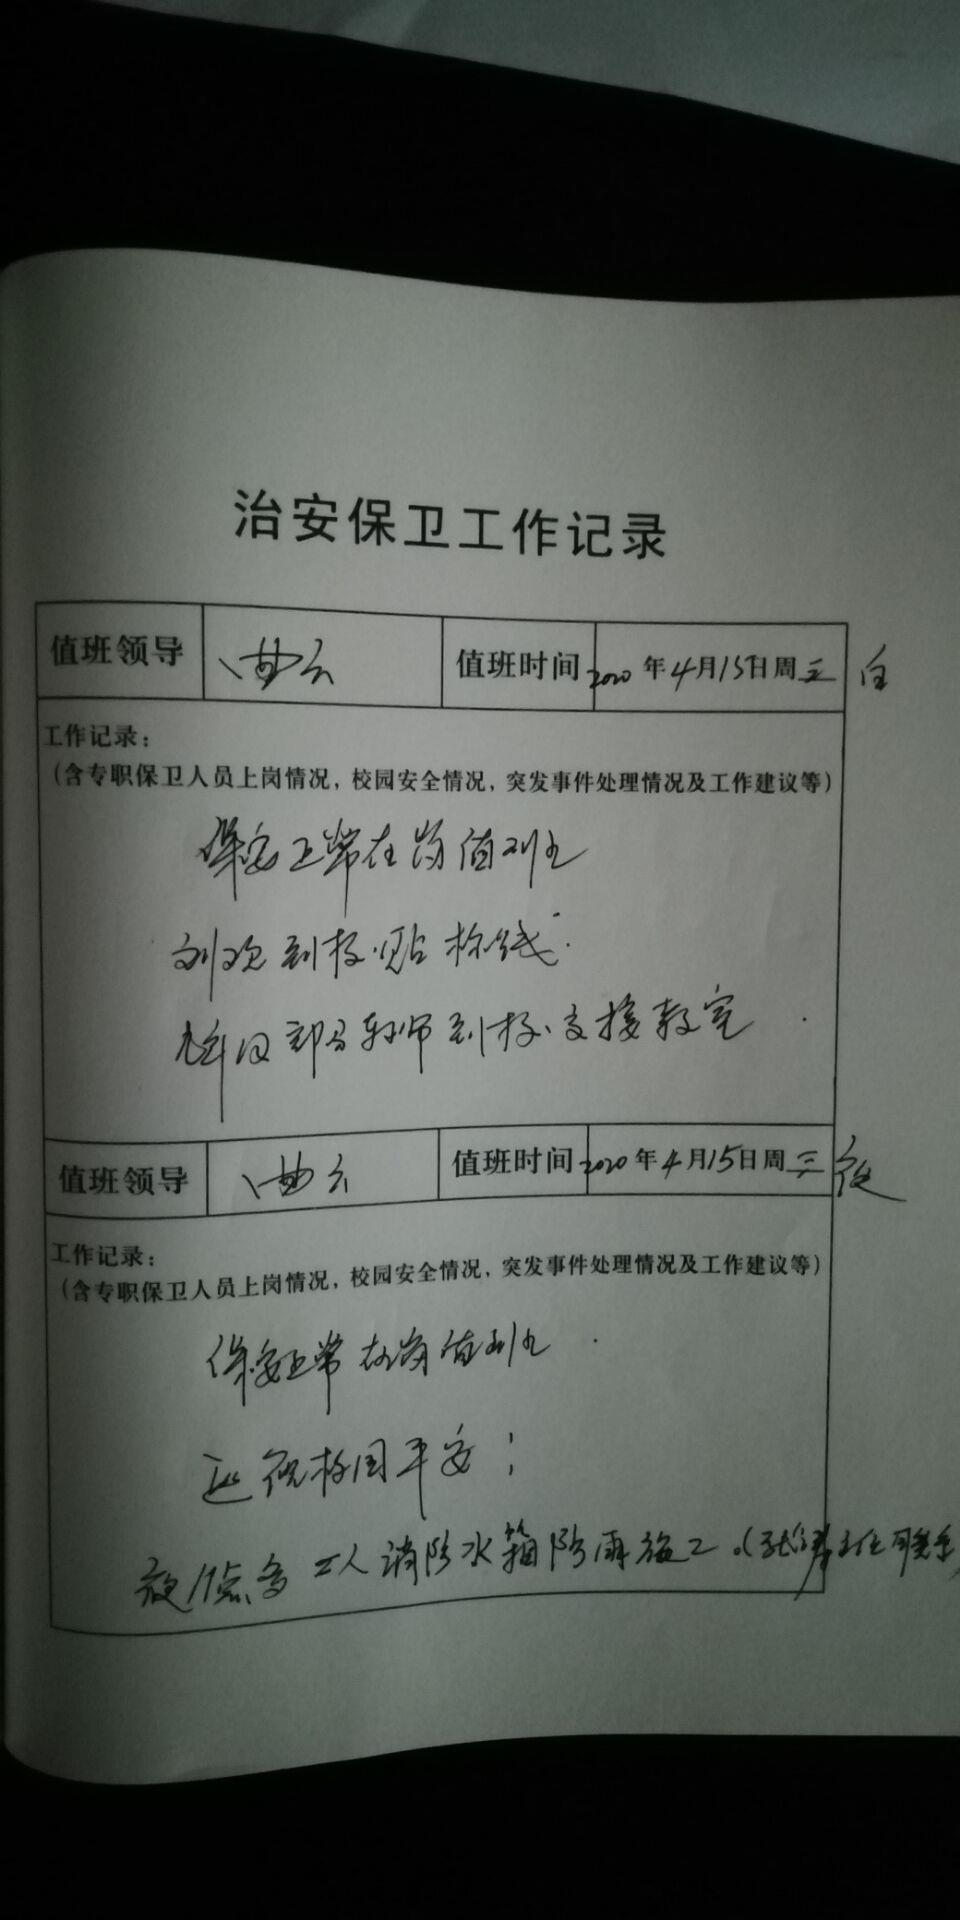 治安保卫工作记录
值班领导 曲云 值班时间 2020年4月15日周三 白
工作记录：
（含专职保卫人员上岗情况，校园安全情况，突发事件处理情况及工作建议等）
保安正常在岗值班
到校贴标线.
部分教师到校交接教室.
值班领导 曲云 值班时间 2020年4月15日周三 夜
工作记录：
（含专职保卫人员上岗情况，校园安全情况，突发事件处理情况及工作建议等）
保安正常在岗值班.
巡视校园平安；
夜1点多工人消防水箱防雨施工.(主任联系